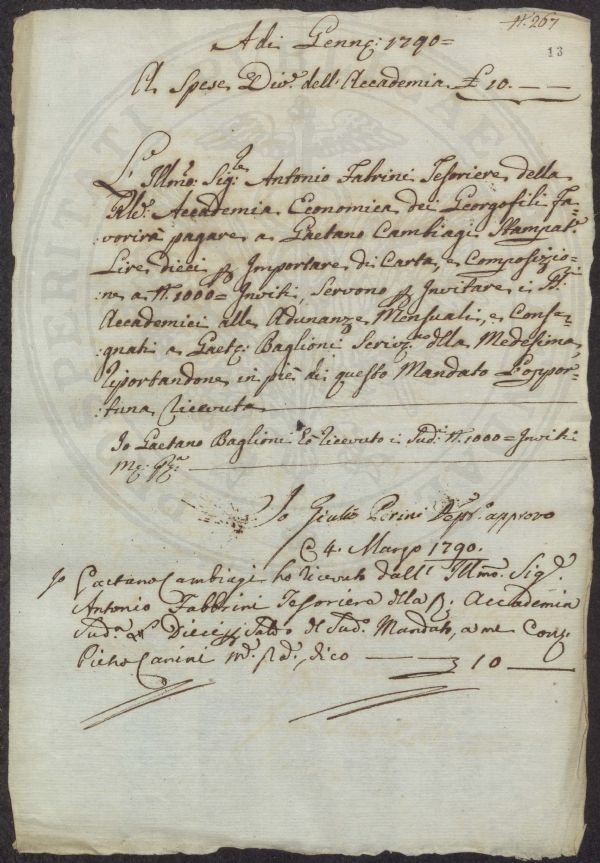 N.° 267
13
A di Genn.° 1790=
A Spese Div.e dell'Accademia £ 10.——
L'Illmo: Sig.re Antonio Fabrini Tesoriere della
Rle: Accademia Economica dei Georgofili Fa=
vorirà pagare a Gaetano Cambiagi Stampat.e
Lire dieci p Importare di Carta, e Composizio=
:ne a N. 1000= Inviti, Servono p Invitare i SS.ri
Accademici alle Adunanze Mensuali, e Conse=
:gnati a Gaet.° Baglioni Scriv.no della Medesima,
riportandone in piè di questo Mandato l'oppor=
tuna ricevuta
Io Gaetano Baglioni hò ricevuto i Sud.i N. 1000= Inviti
M.° pp.a
Io Giulio Perini approvo
4. Marzo 1790.
Io Gaetano Cambiagi ho ricevuto dall' Illmo. Sig.r
Antonio Fabbrini Tesoriere della R. Accademia
Sud.a Dieci p Saldo del Sud.° Mandato, a me
Pietro Canini dico —— 10 ——